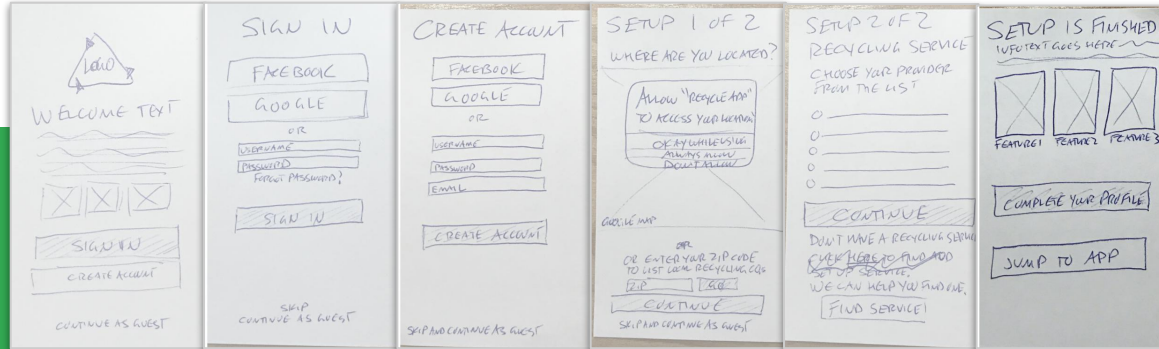 LOGO
WELCOME TEXT
SIGN IN
CREATE ACCOUNT
CONTINUE AS GUEST
SIGN IN
FACEBOOK
GOOGLE
OR
USERNAME
PASSWORD
FORGOT PASSWORD?
SIGN IN
SKIP
CONTINUE AS GUEST
CREATE ACCOUNT
FACEBOOK
GOOGLE
OR
USERNAME
PASSWORD
EMAIL
CREATE ACCOUNT
SKIP AND CONTINUE AS GUEST
SETUP 1 OF 2
WHERE ARE YOU LOCATED?
ALLOW "RECYCLE APP"
TO ACCESS YOUR LOCATION
OKAY WHILE USING
ALWAYS ALLOW
DON'T ALLOW
GOOGLE MAP
OR
OR ENTER YOUR ZIP CODE
TO LIST LOCAL RECYCLING
ZIP
CONTINUE
SKIP AND CONTINUE AS GUEST
SETUP 2 OF 2
RECYCLING SERVICE
CHOOSE YOUR PROVIDER
FROM THE LIST
CONTINUE
DON'T HAVE A RECYCLING SERVICE
CLICK HERE TO FIND AND
SET UP SERVICE.
WE CAN HELP YOU FIND ONE.
FIND SERVICE
SETUP IS FINISHED
INFOTEXT GOES HERE
FEATURE 1 FEATURE 2 FEATURE 3
COMPLETE YOUR PROFILE
JUMP TO APP